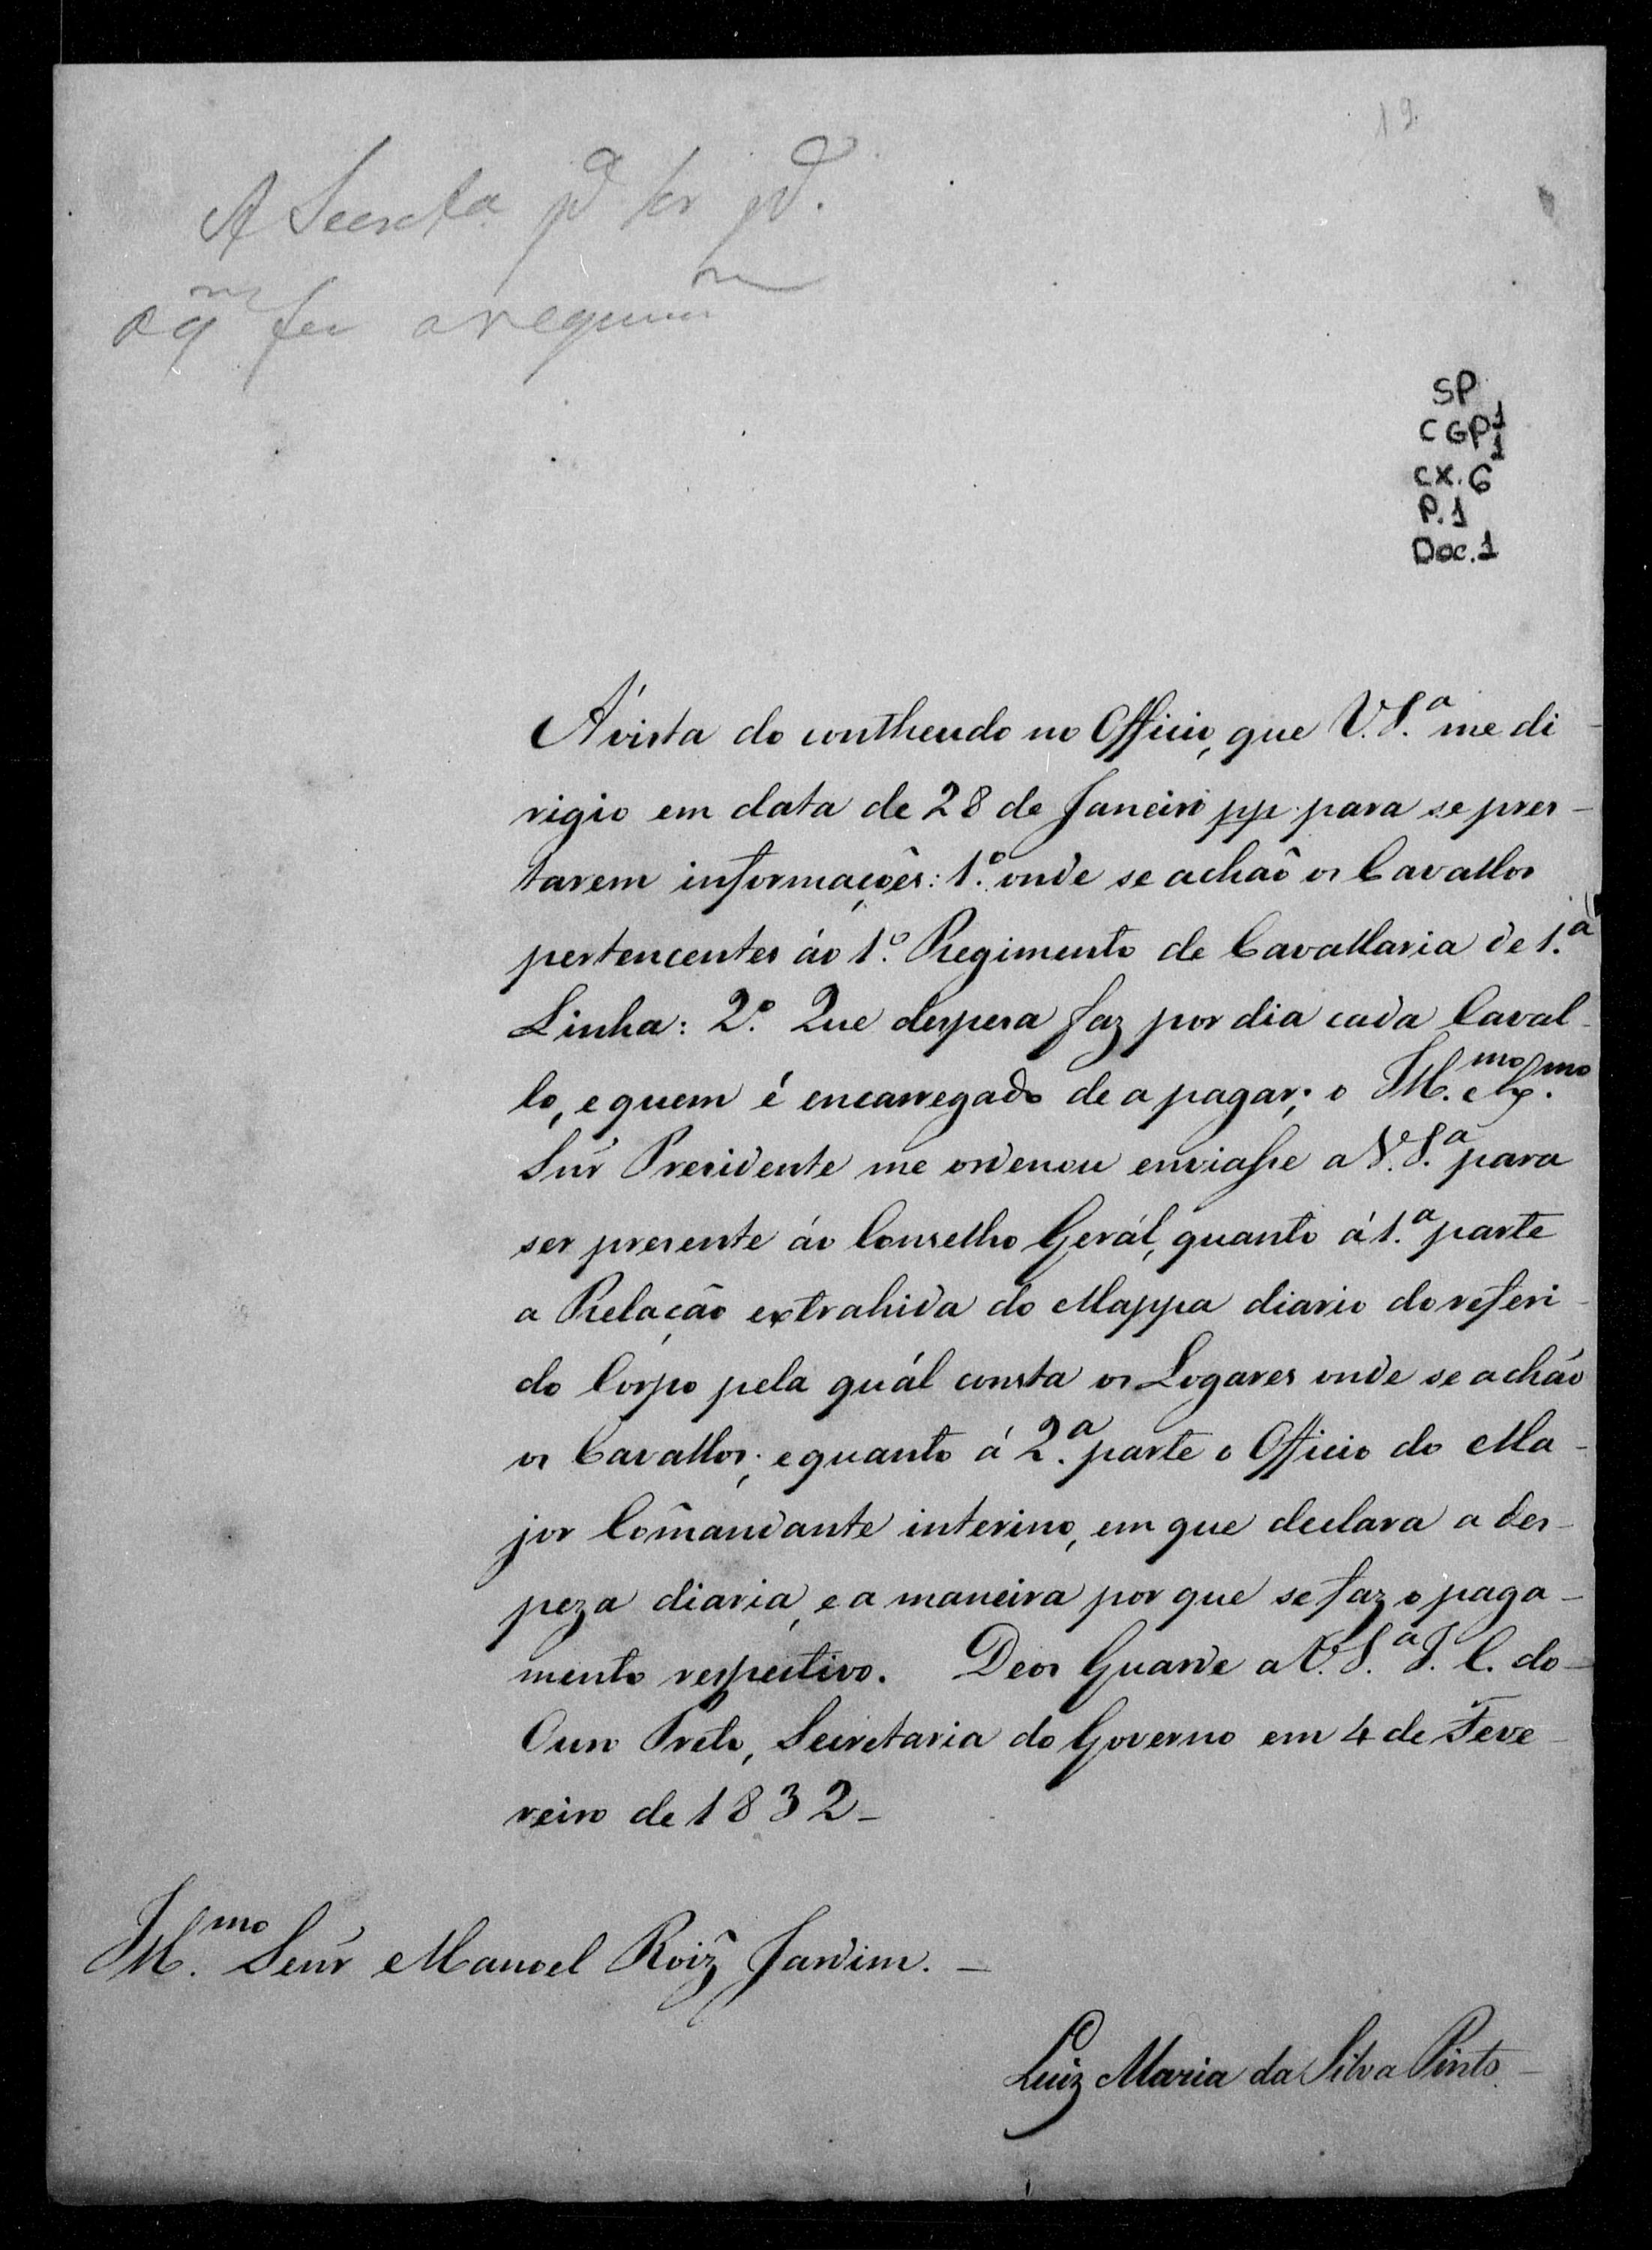 19.
A Secreta pª ler pª.
o qᵐ fez o requerimᵗᵒ
SP
CGP1
1
CX. 6
P. 1
Doc. 1
Á vista do contheudo no Officio, que V. S.ª me di-
rigio em data de 28 de Janeiro pp. para se pres-
tarem informações: 1.º onde se achão os Cavallos
pertencentes áo 1.º Regimento de Cavallaria de 1.ª
Linha: 2.º Que despesa faz por dia cada Caval-
lo, e quem é encarregado de a pagar; o Ill.mo e Ex.mo
Sñr Presidente me ordenou enviasse a V. S.ª para
ser presente áo Conselho Gerál, quanto á 1.ª parte
a Relação extrahida do Mappa diario do referi-
do Corpo pela quál consta os Logares onde se achão
os Cavallos; e quanto á 2.ª parte o Officio do Ma-
jor Cõmandante interino, em que declara a des-
peza diaria, e a maneira por que se faz o paga-
mento respectivo. Deos Guarde a V. S.ª I. C. do
Ouro Preto, Secretaria do Governo em 4 de Feve-
reiro de 1832-
Ill.mo Senr Manoel Roiz Jardim. -
Luiz Maria da Silva Pinto